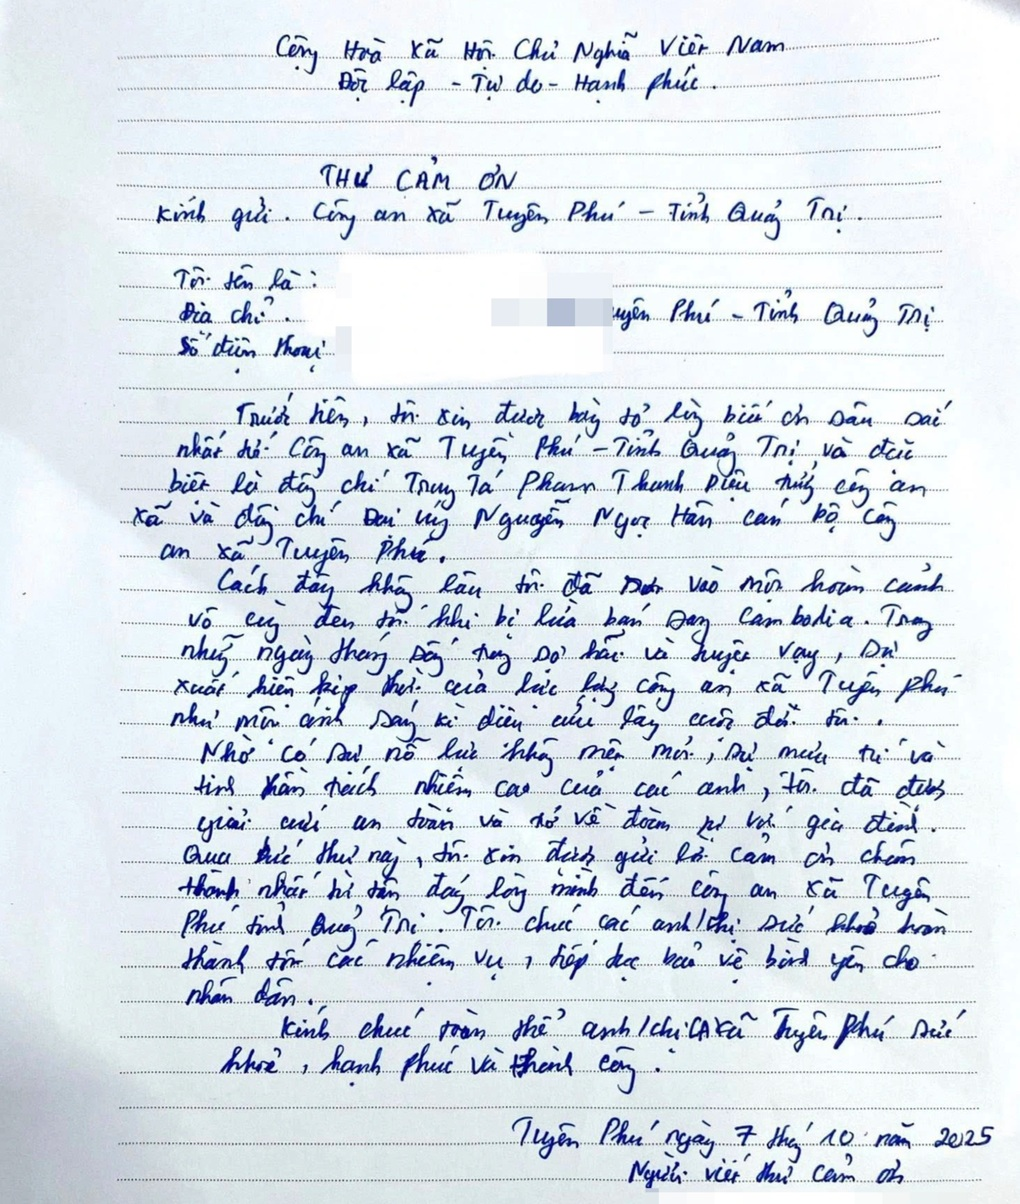 Cộng Hoà Xã Hội Chủ Nghĩa Việt Nam
Độc lập - Tự do - Hạnh phúc.
THƯ CẢM ƠN
Kính gửi. Công an xã Tuyên Phú - Tỉnh Quảng Trị.
Tôi tên là:
Địa chỉ. uyên Phú - Tỉnh Quảng Trị
Số điện thoại
Trước tiên, tôi xin được bày tỏ lòng biết ơn sâu sắc
nhất tới Công an xã Tuyên Phú - Tỉnh Quảng Trị và đặc
biệt là đồng chí Trung Tá Phạm Thanh Diệu trưởng công an
xã và đồng chí Đại úy Nguyễn Ngọc Hân cán bộ công
an xã Tuyên Phú.
Cách đây không lâu tôi đã vào một hoàn cảnh
vô cùng đen tối khi bị lừa bán sang Cambodia. Trong
những ngày tháng sống trong sợ hãi và tuyệt vọng, sự
xuất hiện kịp thời của lực lượng công an xã Tuyên Phú
như một ánh sáng kì diệu cứu lấy cuộc đời tôi.
Nhờ có sự nỗ lực không mệt mỏi, sự mưu trí và
tinh thần trách nhiệm cao của các anh, tôi đã được
giải cứu an toàn và trở về đoàn tụ với gia đình.
Qua bức thư này, tôi xin được gửi lời cảm ơn chân
thành nhất từ tận đáy lòng mình đến công an xã Tuyên
Phú tỉnh Quảng Trị. Tôi chúc các anh/chị sức khoẻ hoàn
thành tốt các nhiệm vụ, tiếp tục bảo vệ bình yên cho
nhân dân.
Kính chúc toàn thể anh/chị CA xã Tuyên Phú sức
khoẻ, hạnh phúc và thành công.
Tuyên Phú ngày 7 tháng 10 năm 2025
Người viết thư cảm ơn